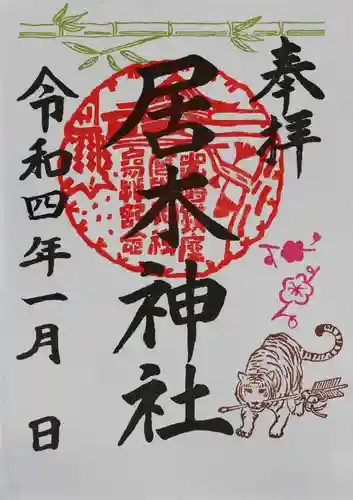 奉拝
居木神社
令和四年一月 日